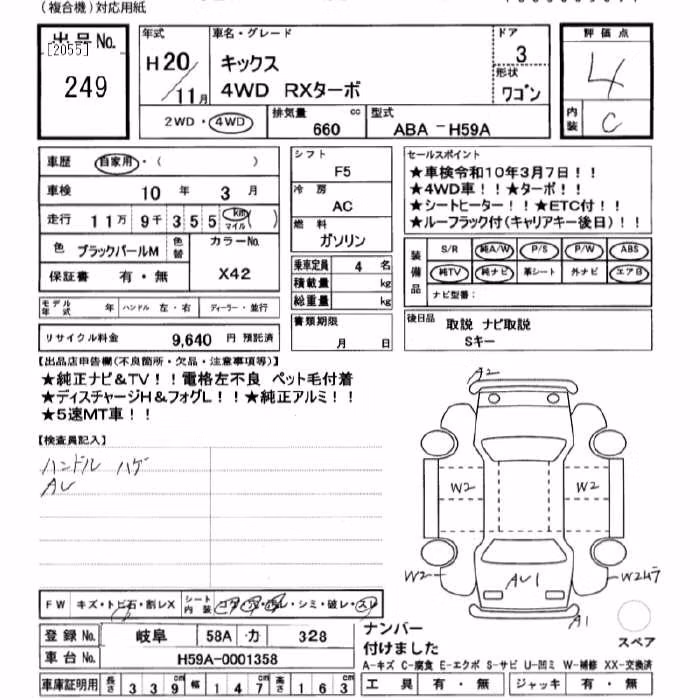 (複合機)対応用紙
出品No.
[2055]
249
年式
H20/11月
車名・グレード
キックス
4WD RXターボ
ドア
3
形状
ワゴン
評価点
4
内装
C
2WD・4WD
排気量
660
cc
型式
ABA-H59A
車歴
自家用・( )
車検
10年 3月
走行
11万 9千 355 km マイル ( )
色
ブラックパールM
色替
カラーNo.
X42
保証書
有・無
モデル年式
年
ハンドル 左・右
ディーラー・並行
リサイクル料金
9,640 円 預託済
シフト
F5
冷房
AC
燃料
ガソリン
乗車定員 4 名
積載量 kg
総重量 kg
書類期限
月 日
セールスポイント
★車検令和10年3月7日!!
★4WD車!!★ターボ!!
★シートヒーター!!★ETC付!!
★ルーフラック付(キャリアキー後日)!!
装備品
S/R 純A/W P/S P/W ABS
純TV 純ナビ 革シート 外ナビ エアB
ナビ型番:
後日品
取説 ナビ取説
Sキー
【出品店申告欄(不良箇所・欠品・注意事項等)】
★純正ナビ&TV!!電格左不良 ペット毛付着
★ディスチャージH&フォグL!!★純正アルミ!!
★5速MT車!!
【検査員記入】
ハンドル ハゲ
AU
A2
W2
W2
W2
AU1
A1
FW キズ・トビ石・割レX
シート内装
シミ・破レ・スレ
登録No. 岐阜 58A カ 328
車台No. H59A-0001358
車庫証明用 長さ 339cm 幅 147cm 高さ 163cm
ナンバー
付けました
スペア
A-キズ C-腐食 E-エクボ S-サビ U-凹ミ W-補修 XX-交換済
工具 有・無 ジャッキ 有・無